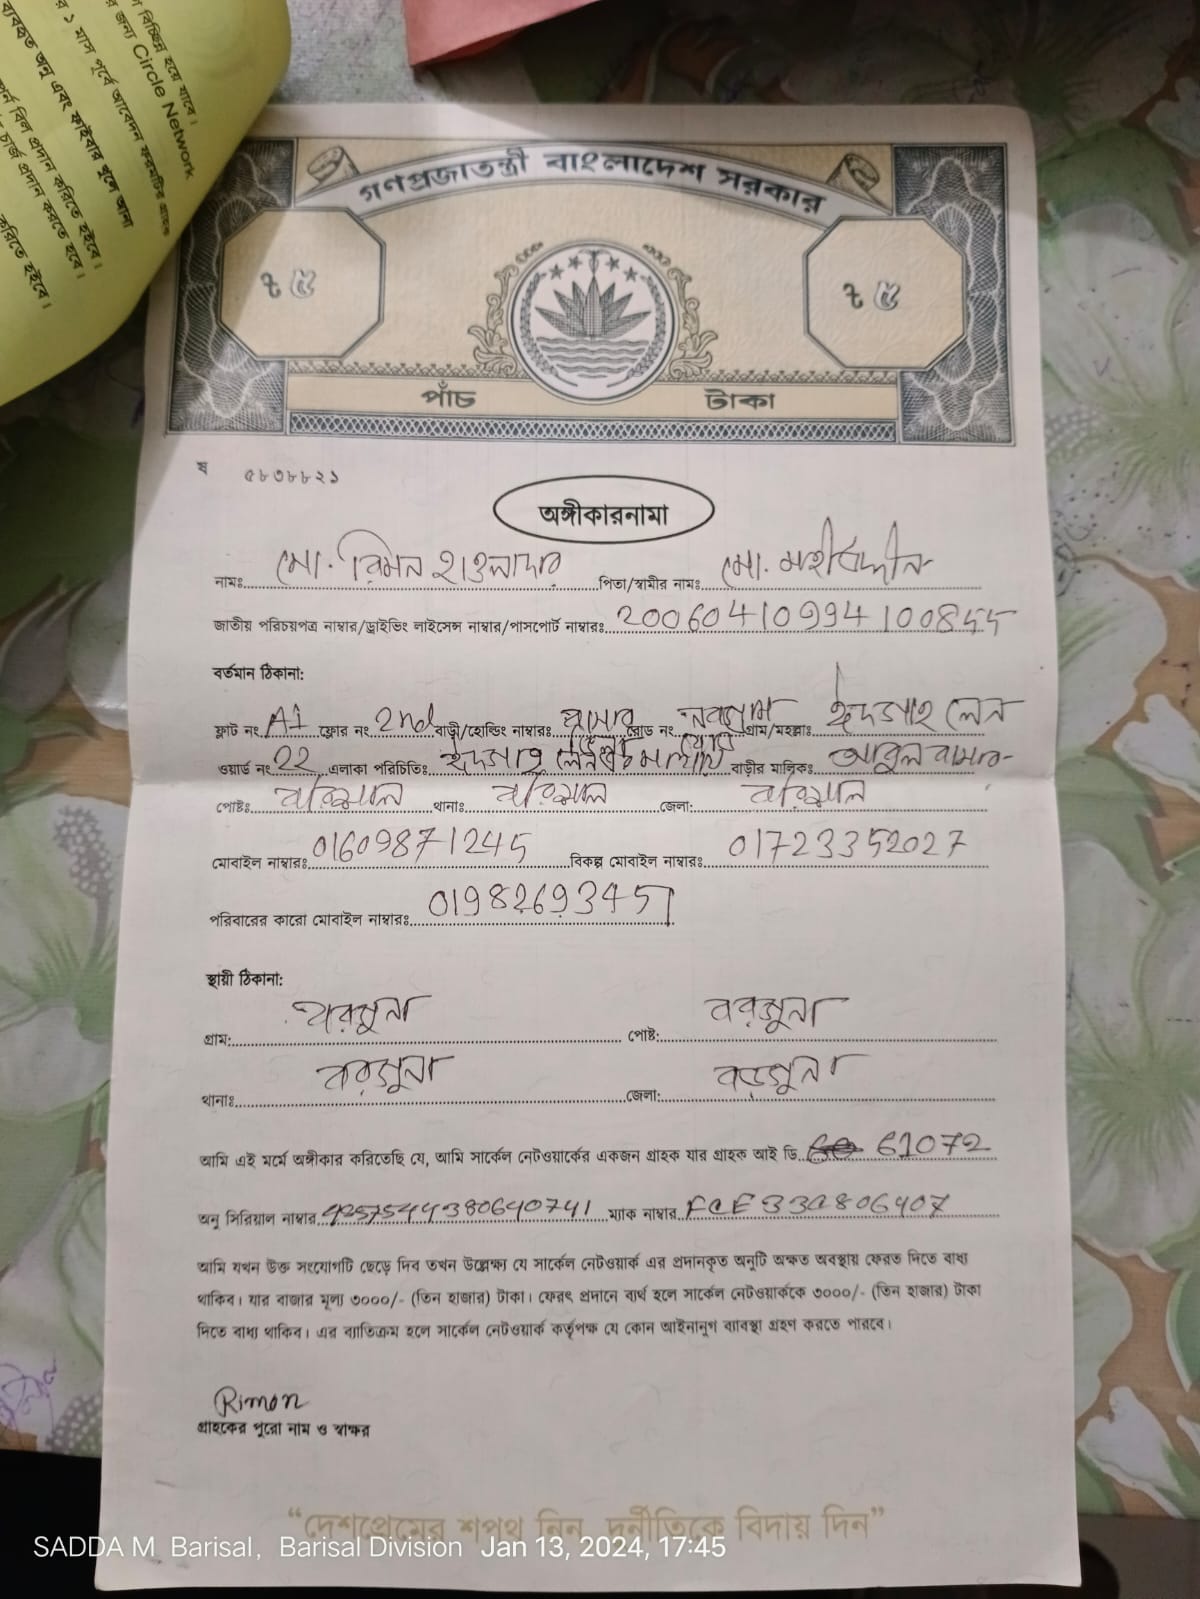 বিচ্ছিন্ন হয়ে যাবে।
জন্য Circle Network
র ১ মাস পূর্বে আবেদন ফরমটির গ্রাহক
ব্যবহৃত অনু এবং ফাইবার খুলে আনা
বিল প্রদান করিতে হইবে।
চার্জ প্রদান করতে হবে।
করিতে হইবে।
গণপ্রজাতন্ত্রী বাংলাদেশ সরকার
৳ ৫ ৳ ৫
পাঁচ টাকা
ষ ৫৮৩৮৮২১
অঙ্গীকারনামা
নামঃ মো. রিমন হাওলাদার পিতা/স্বামীর নামঃ মো. মহীউদ্দীন
জাতীয় পরিচয়পত্র নাম্বার/ড্রাইভিং লাইসেন্স নাম্বার/পাসপোর্ট নাম্বারঃ 20060410994100855
বর্তমান ঠিকানা:
ফ্লাট নং A1 ফ্লোর নং 2nd বাড়ী/হোল্ডিং নাম্বারঃ রোড নং নবগ্রাম গ্রাম/মহল্লাঃ ঈদগাহ লেন
ওয়ার্ড নং 22 এলাকা পরিচিতিঃ ঈদগাহ লেন বাড়ীর মালিকঃ আবুল বাসার
পোষ্টঃ বরিশাল থানাঃ বরিশাল জেলা: বরিশাল
মোবাইল নাম্বারঃ 01609871245 বিকল্প মোবাইল নাম্বারঃ 01723352027
পরিবারের কারো মোবাইল নাম্বারঃ 01982693451
স্থায়ী ঠিকানা:
গ্রাম: বরগুনা পোষ্ট: বরগুনা
থানাঃ বরগুনা জেলা: বড়গুনা
আমি এই মর্মে অঙ্গীকার করিতেছি যে, আমি সার্কেল নেটওয়ার্কের একজন গ্রাহক যার গ্রাহক আই ডি 61072
অনু সিরিয়াল নাম্বার 4857544380640741 ম্যাক নাম্বার FCE33C806407
আমি যখন উক্ত সংযোগটি ছেড়ে দিব তখন উল্লেক্ষ্য যে সার্কেল নেটওয়ার্ক এর প্রদানকৃত অনুটি অক্ষত অবস্থায় ফেরত দিতে বাধ্য
থাকিব। যার বাজার মূল্য ৩০০০/- (তিন হাজার) টাকা। ফেরৎ প্রদানে ব্যর্থ হলে সার্কেল নেটওয়ার্ককে ৩০০০/- (তিন হাজার) টাকা
দিতে বাধ্য থাকিব। এর ব্যাতিক্রম হলে সার্কেল নেটওয়ার্ক কর্তৃপক্ষ যে কোন আইনানুগ ব্যাবস্থা গ্রহণ করতে পারবে।
Rimon
গ্রাহকের পুরো নাম ও স্বাক্ষর
“দেশপ্রেমের শপথ নিন, দুর্নীতিকে বিদায় দিন”
SADDA M Barisal, Barisal Division Jan 13, 2024, 17:45